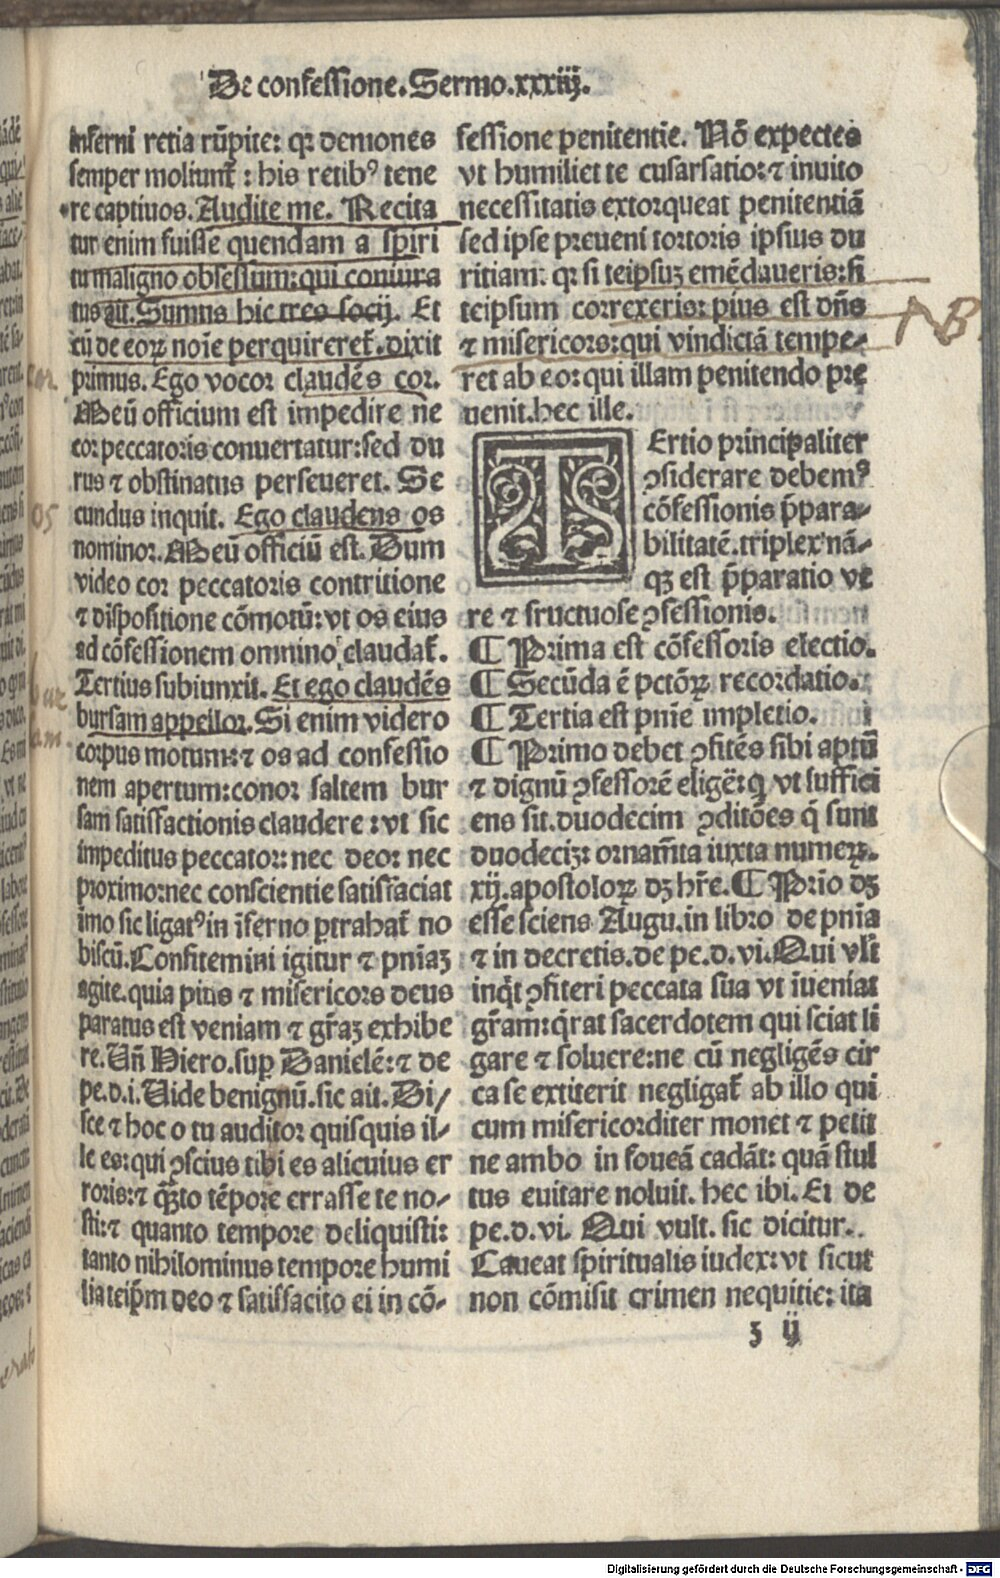 De confessione. Sermo. xxxiij.
inferni retia rūpite: qꝛ demones
semper moliunt̄ : his retibꝰ tene
re captiuos. Audite me. Recita
tur enim fuisse quendam a spiri
tu maligno obsessum: qui coniura
tus ait. Sumus hic tres socij. Et
cū de eoꝝ noīe perquireret̄. dixit
primus. Ego vocor claudēs cor.
Meū officium est impedire ne
cor peccatoris conuertatur: sed du
rus ⁊ obstinatus perseueret. Se
cundus inquit. Ego claudens os
nominor. Meū officiū est. Dum
video cor peccatoris contritione
⁊ dispositione cōmotū: vt os eius
ad cōfessionem omnino claudat̄.
Tertius subiunxit. Et ego claudēs
bursam appellor. Si enim videro
corpus motum: ⁊ os ad confessio
nem apertum: conor saltem bur
sam satisfactionis claudere : vt sic
impeditus peccator: nec deo: nec
proximo: nec conscientie satisfaciat
īmo sic ligatꝰ in īferno ꝑtrahat̄ no
biscū. Confitemini igitur ⁊ pn̄iaꝫ
agite. quia pius ⁊ misericors deus
paratus est veniam ⁊ gr̄aꝫ exhibe
re. Un̄ Hiero. suꝑ Danielē: ⁊ de
pe. d. i. Uide benignū. sic ait. Di⸗
sce ⁊ hoc o tu auditor quisquis il⸗
le es: qui ꝯscius tibi es alicuius er
roris: ⁊ qꝫto tēpore errasse te no⸗
sti: ⁊ quanto tempore deliquisti:
tanto nihilominus tempore humi
lia teip̄m deo ⁊ satisfacito ei in cō⸗
fessione penitentie. Nō expectes
vt humiliet te cusarsatio: ⁊ inuito
necessitatis extorqueat penitentiā
sed ipse preueni tortoris ipsius du
ritiam: qꝛ si teipsuꝫ emēdaueris: si
teipsum correxeris: pius est dn̄s
⁊ misericors: qui vindictā tempe⸗
ret ab eo: qui illam penitendo pre
uenit. hec ille.
TErtio principaliter
ꝯsiderare debemꝰ
cōfessionis p̄para⸗
bilitatē. triplex nā⸗
qꝫ est p̄paratio ve
re ⁊ fructuose ꝯfessionis.
¶ Prima est cōfessoris electio.
¶ Secūda ē pctōꝝ recordatio.
¶ Tertia est pn̄ie impletio.
¶ Primo debet ꝯfitēs sibi aptū
⁊ dignū ꝯfessorē eligē: qͥ vt suffici
ens sit. duodecim ꝯditōes q̄ sunt
duodeciꝫ: ornam̄ta iuxta numeꝝ.
xij. apostoloꝝ dꝫ hr̄e. ¶ Prīo dꝫ
esse sciens Augu. in libro de pn̄ia
⁊ in decretis. de pe. d. vi. Qui vl̄t
inq̄t ꝯfiteri peccata sua vt īueniat
gr̄am: q̄rat sacerdotem qui sciat li
gare ⁊ soluere: ne cū negligēs cir
ca se extiterit negligat̄ ab illo qui
cum misericorditer monet ⁊ petit
ne ambo in foueā cadāt: quā stul
tus euitare noluit. hec ibi. Et de
pe. d. vi. Qui vult. sic dicitur.
Caueat spiritualis iudex: vt sicut
non cōmisit crimen nequitie: ita
ʒ ij
cor
os
bur
sam
NB
Digitalisierung gefördert durch die Deutsche Forschungsgemeinschaft - DFG